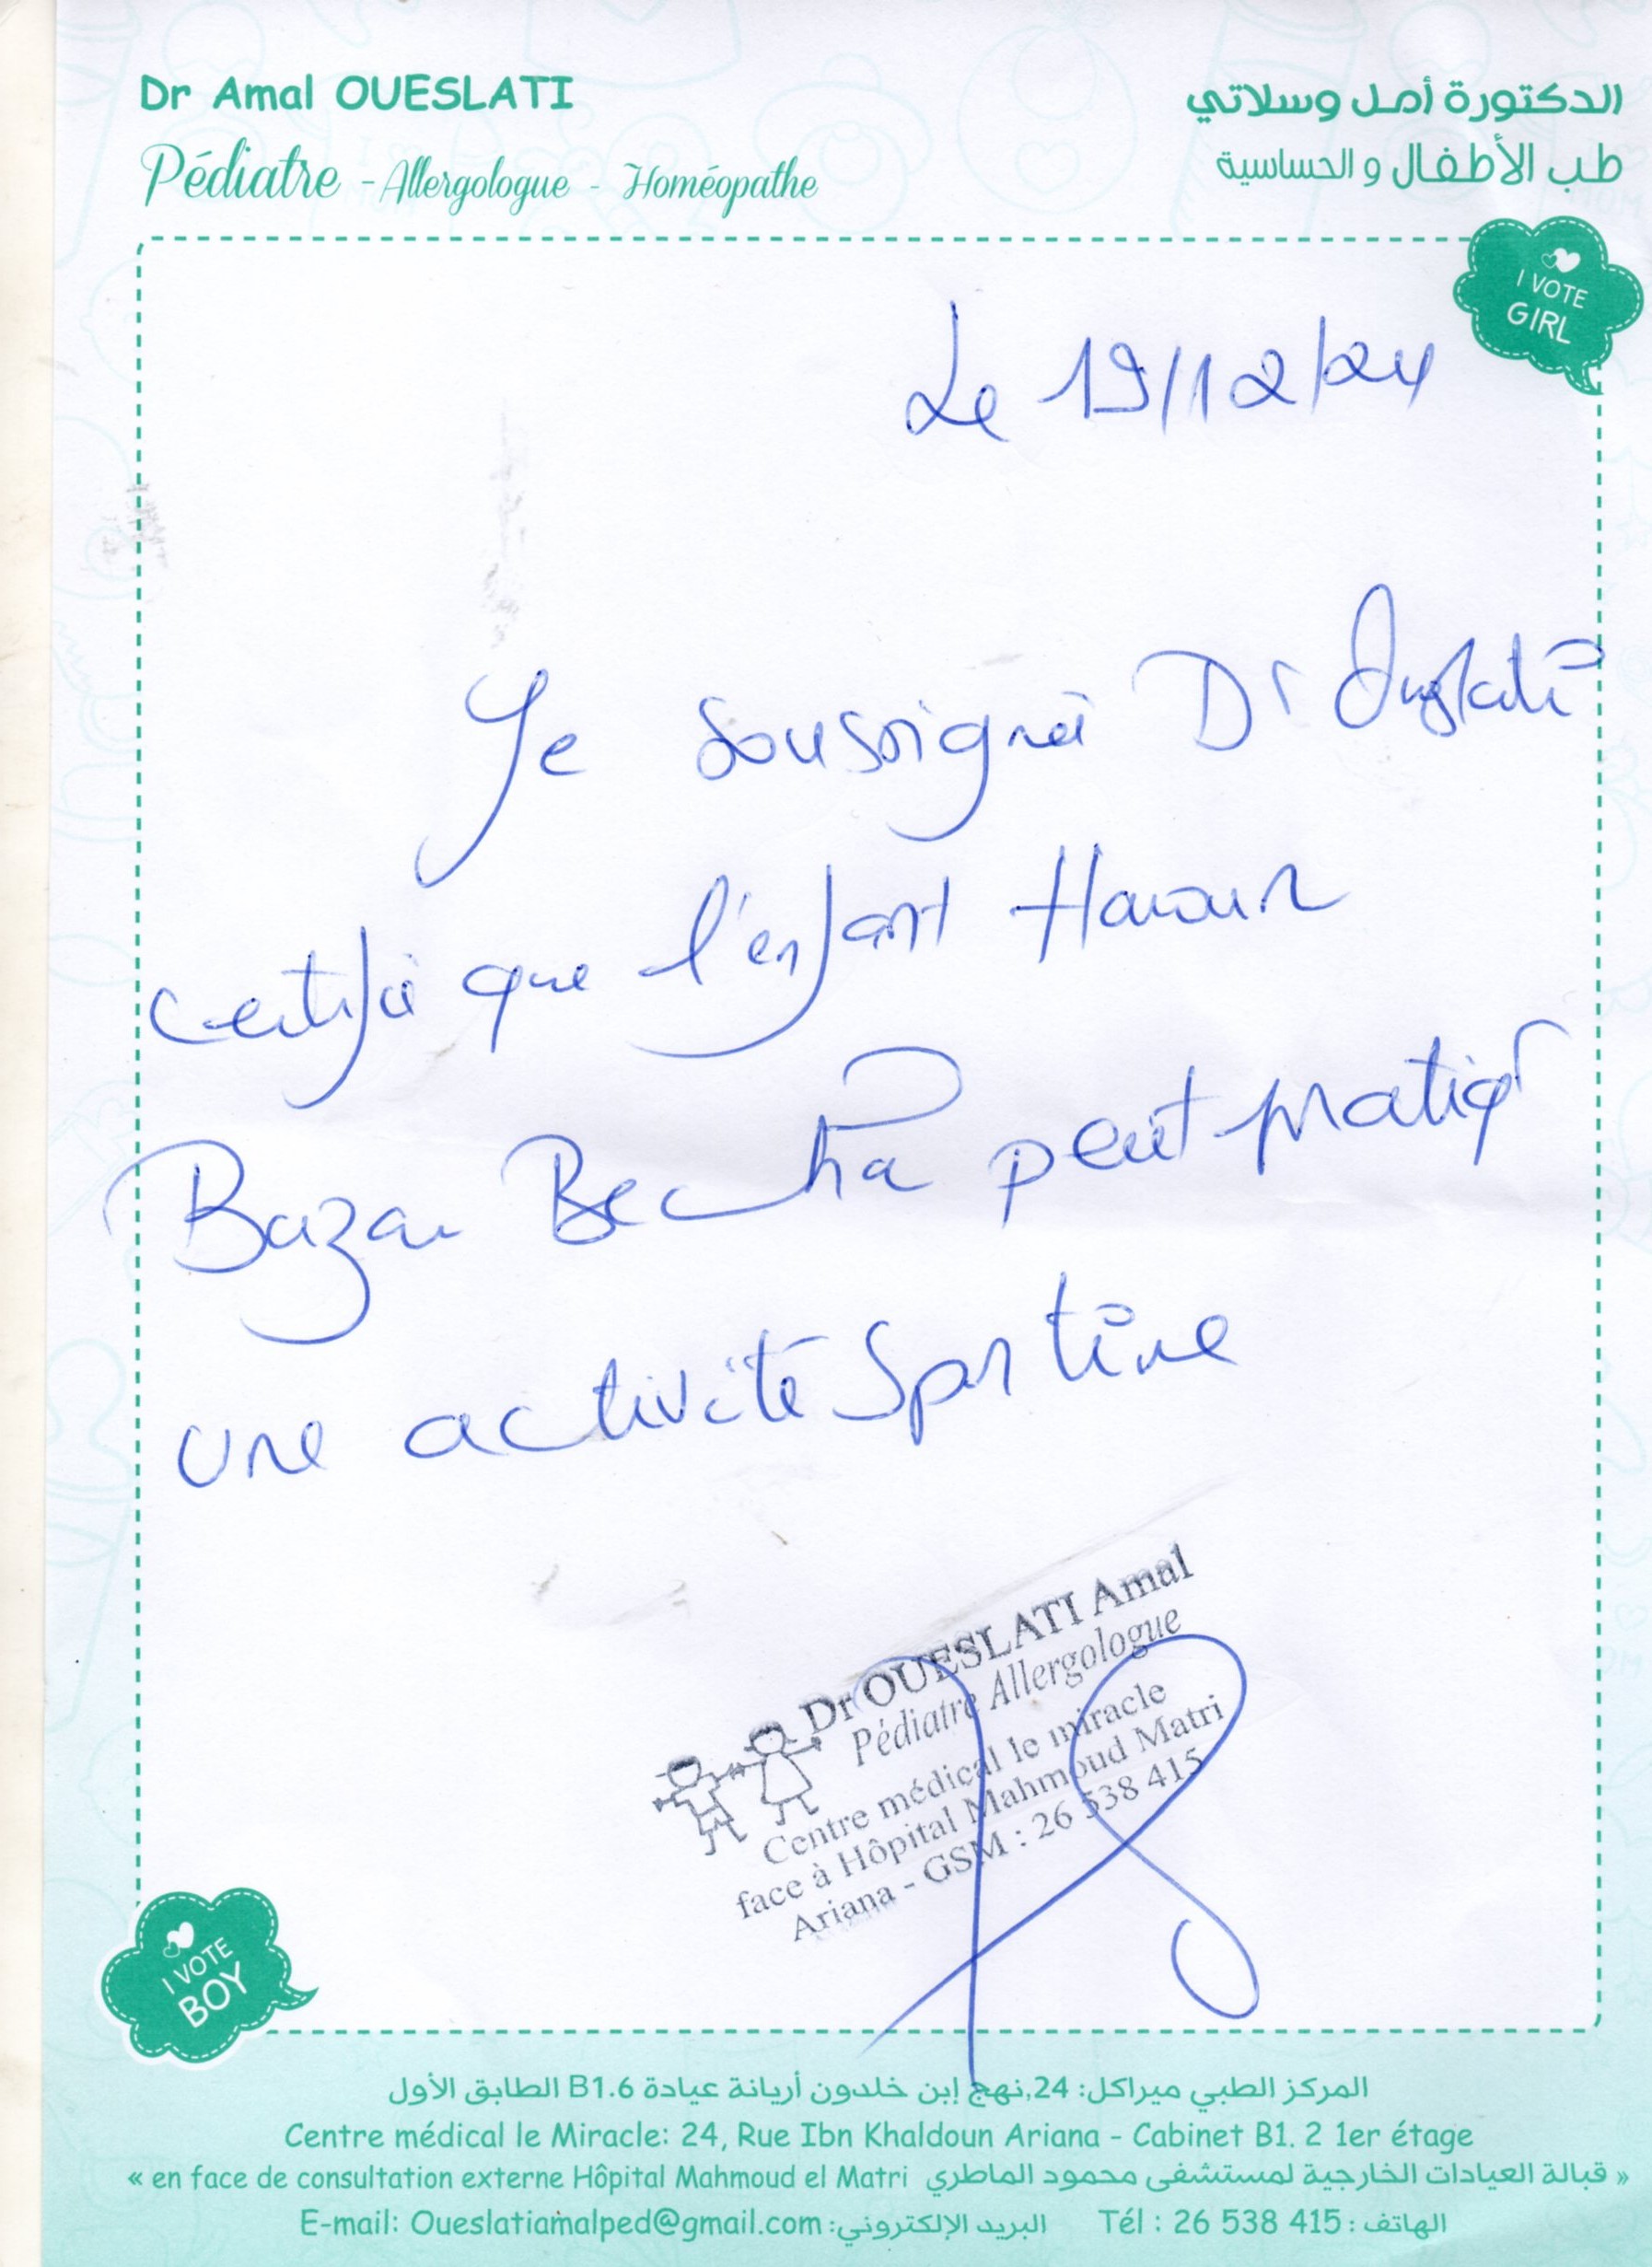 Dr Amal OUESLATI
الدكتورة أمل وسلاتي
Pédiatre - Allergologue - Homéopathe
طب الأطفال و الحساسية
I VOTE
GIRL
Le 19/12/24
Je soussigné Dr Oueslati
certifie que l'enfant Haroun
Bazar Becha peut pratiqr
une activité sportive
Dr OUESLATI Amal
Pédiatre Allergologue
Centre médical le miracle
face à Hôpital Mahmoud Matri
Ariana - GSM : 26 538 415
I VOTE
BOY
المركز الطبي ميراكل: 24,نهج إبن خلدون أريانة عيادة B1.6 الطابق الأول
Centre médical le Miracle: 24, Rue Ibn Khaldoun Ariana - Cabinet B1. 2 1er étage
« en face de consultation externe Hôpital Mahmoud el Matri قبالة العيادات الخارجية لمستشفى محمود الماطري »
E-mail: Oueslatiamalped@gmail.com :البريد الإلكتروني Tél : 26 538 415 : الهاتف